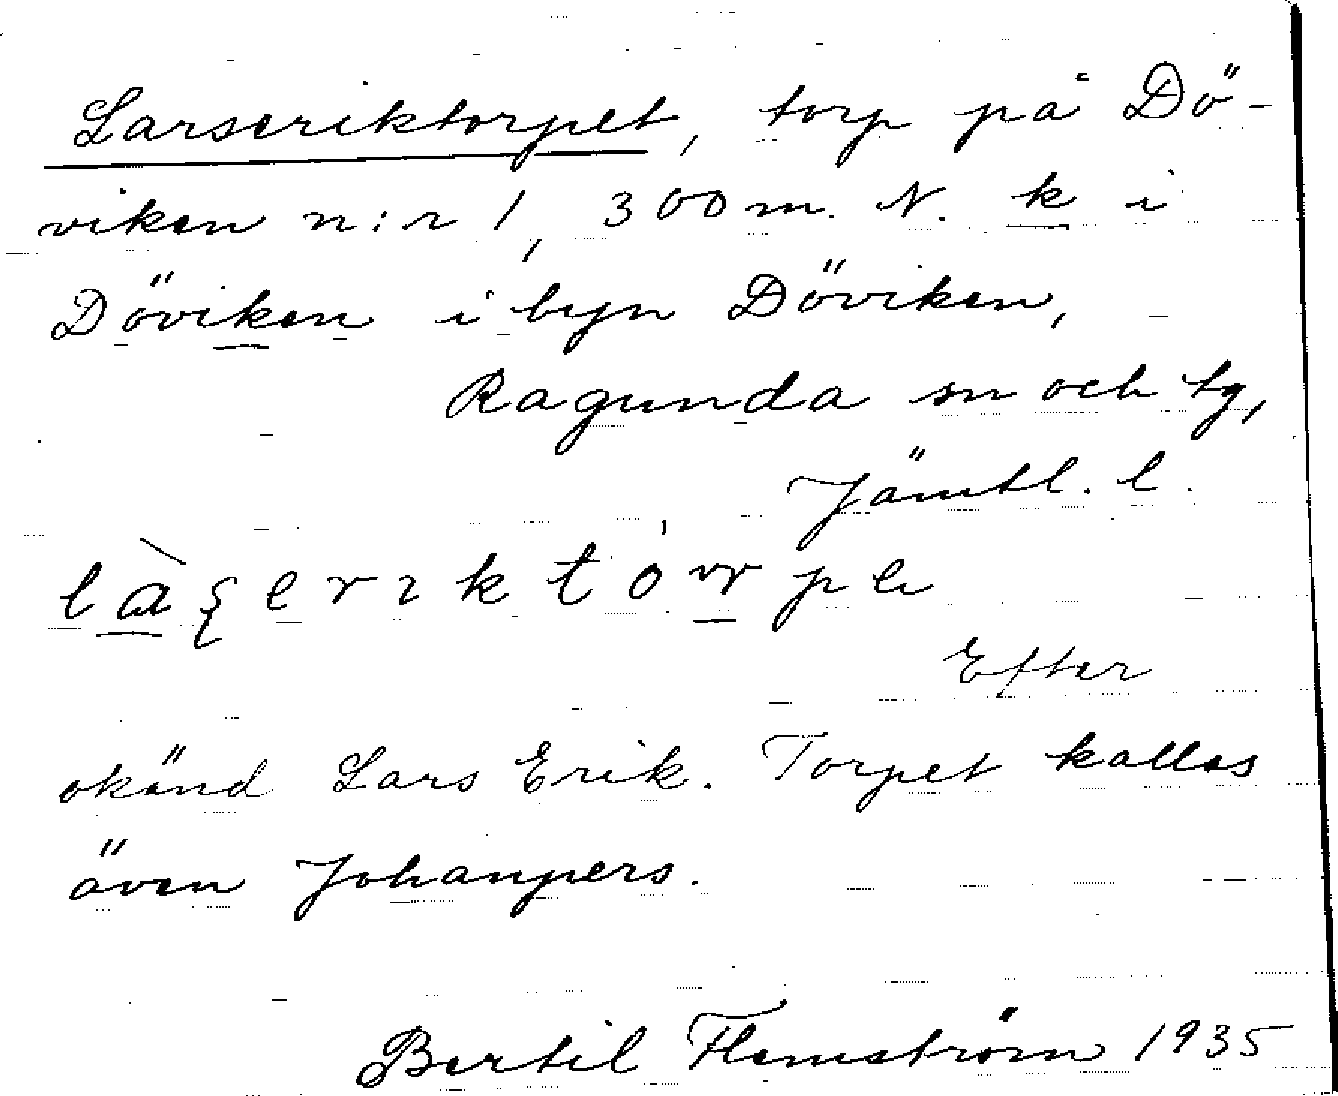 Larseriktorpet, torp på Dö-
viken n:r 1, 300 m. N. k i
Döviken i byn Döviken,
Ragunda sn och tg,
Jämtl. l.
Efter
okänd Lars Erik. Torpet kallas
även Johanpers.
Bertil Flemström 1935